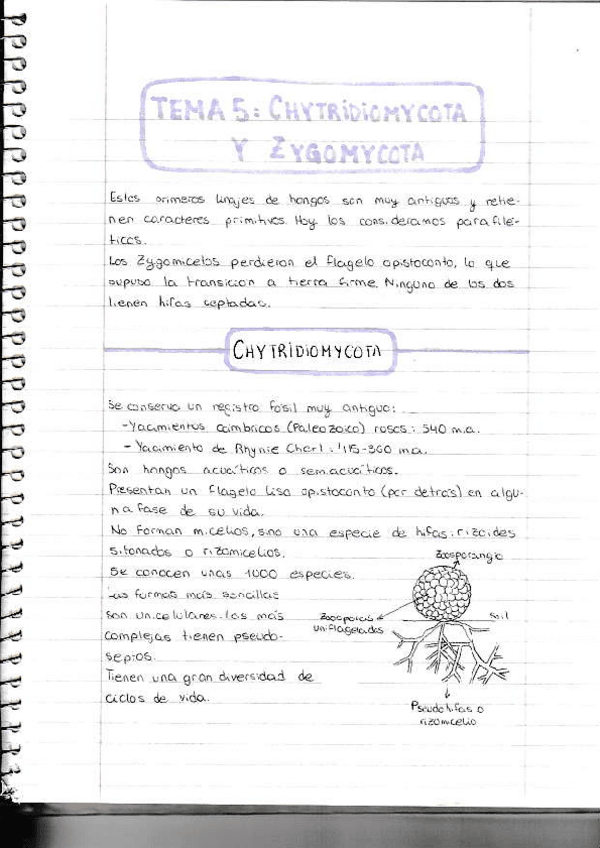 TEMA 5: CHYTRIDIOMYCOTA
Y ZYGOMYCOTA
Estos primeros linajes de hongos son muy antiguos y retie-
nen caracteres primitivos. Hoy los consideramos parafilé-
ticos.
Los Zygomicetos perdieron el flagelo opistoconto, lo que
supuso la transición a tierra firme. Ninguno de los dos
tienen hifas septadas.
CHYTRIDIOMYCOTA
Se conserva un registro fósil muy antiguo:
-Yacimientos cámbricos (Paleozoico) rusos: 540 m.a.
- Yacimiento de Rhynie Chert: 415-360 m.a.
Son hongos acuáticos o semiacuáticos.
Presentan un flagelo liso opistoconto (por detrás) en algu-
na fase de su vida.
No forman micelios, sino una especie de hifas: rizoides
sifonados o rizomicelios.
Se conocen unas 1000 especies.
Las formas más sencillas
son unicelulares. Las más
complejas tienen pseudo-
septos.
Tienen una gran diversidad de
ciclos de vida.
Zoosporangio
Zoosporas
uniflageladas
Soil
Pseudohifas o
rizomicelio